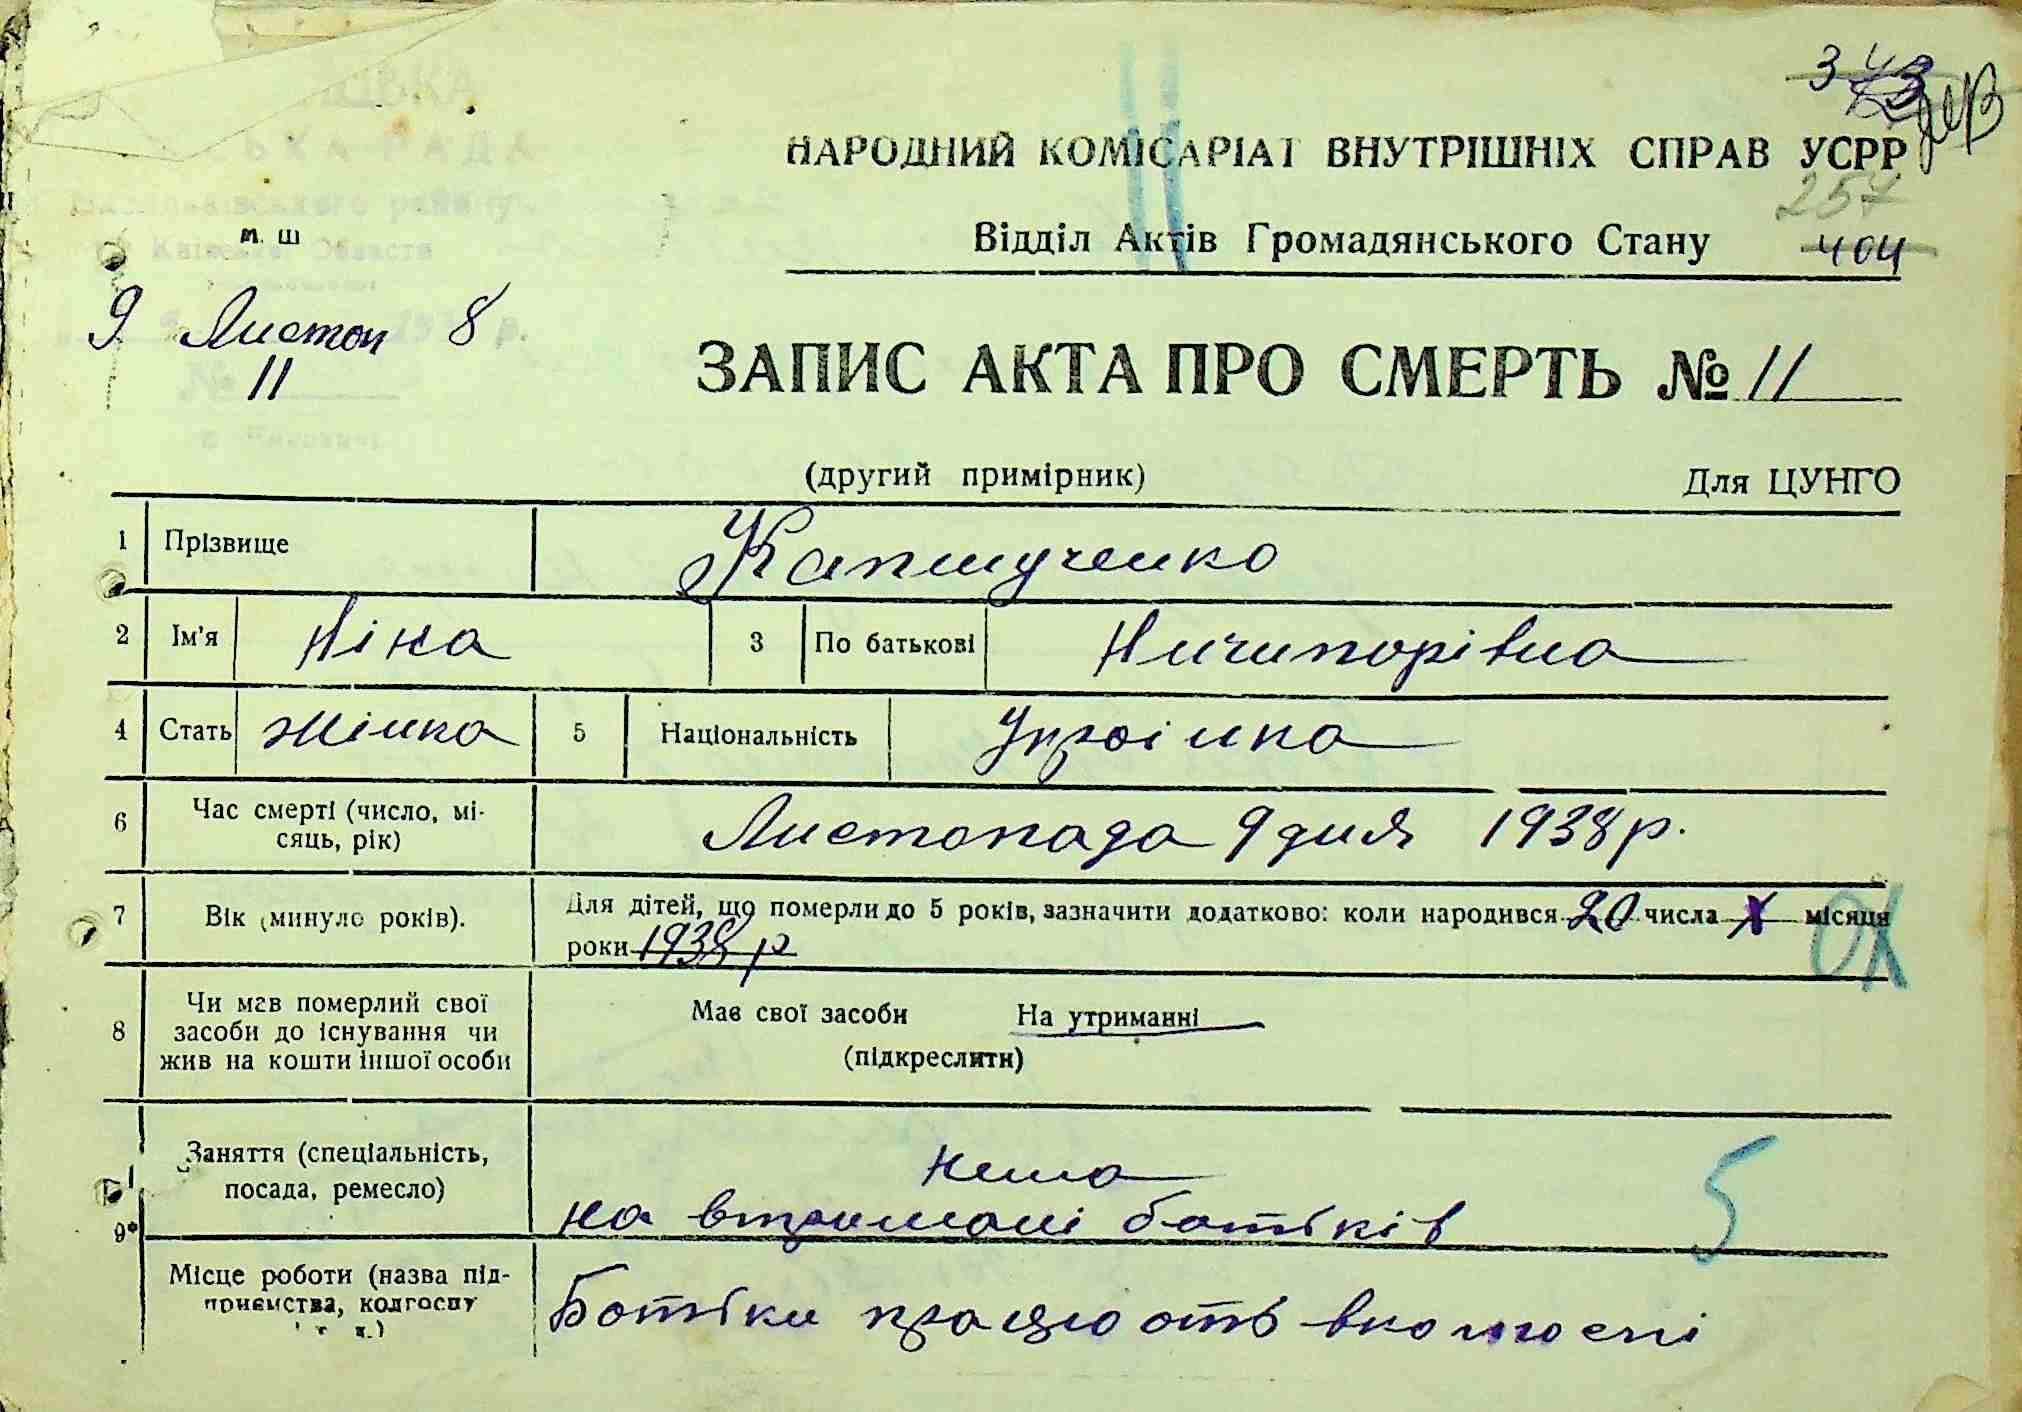 НАРОДНИЙ КОМІСАРІАТ ВНУТРІШНІХ СПРАВ УСРР
257
м. ш
Відділ Актів Громадянського Стану 404
9 Листоп 8 р.
11
ЗАПИС АКТА ПРО СМЕРТЬ № 11
(другий примірник) Для ЦУНГО
1 Прізвище Капшученко
2 Ім'я Ніна 3 По батькові Ничипорівна
4 Стать жінка 5 Національність Українка
6 Час смерті (число, мі-
сяць, рік) Листопада 9 дня 1938 р.
7 Вік (минуло років). Для дітей, що померли до 5 років, зазначити додатково: коли народився 20 числа X місяця
роки 1938 р
ОХ
8 Чи мав померлий свої
засоби до існування чи
жив на кошти іншої особи Має свої засоби На утриманні
(підкреслити)
Заняття (спеціальність,
посада, ремесло) нема
на втримані батьків 5
9*
Місце роботи (назва під-
приємства, колгоспу
і т. д.) Батьки працюють вколгоспі